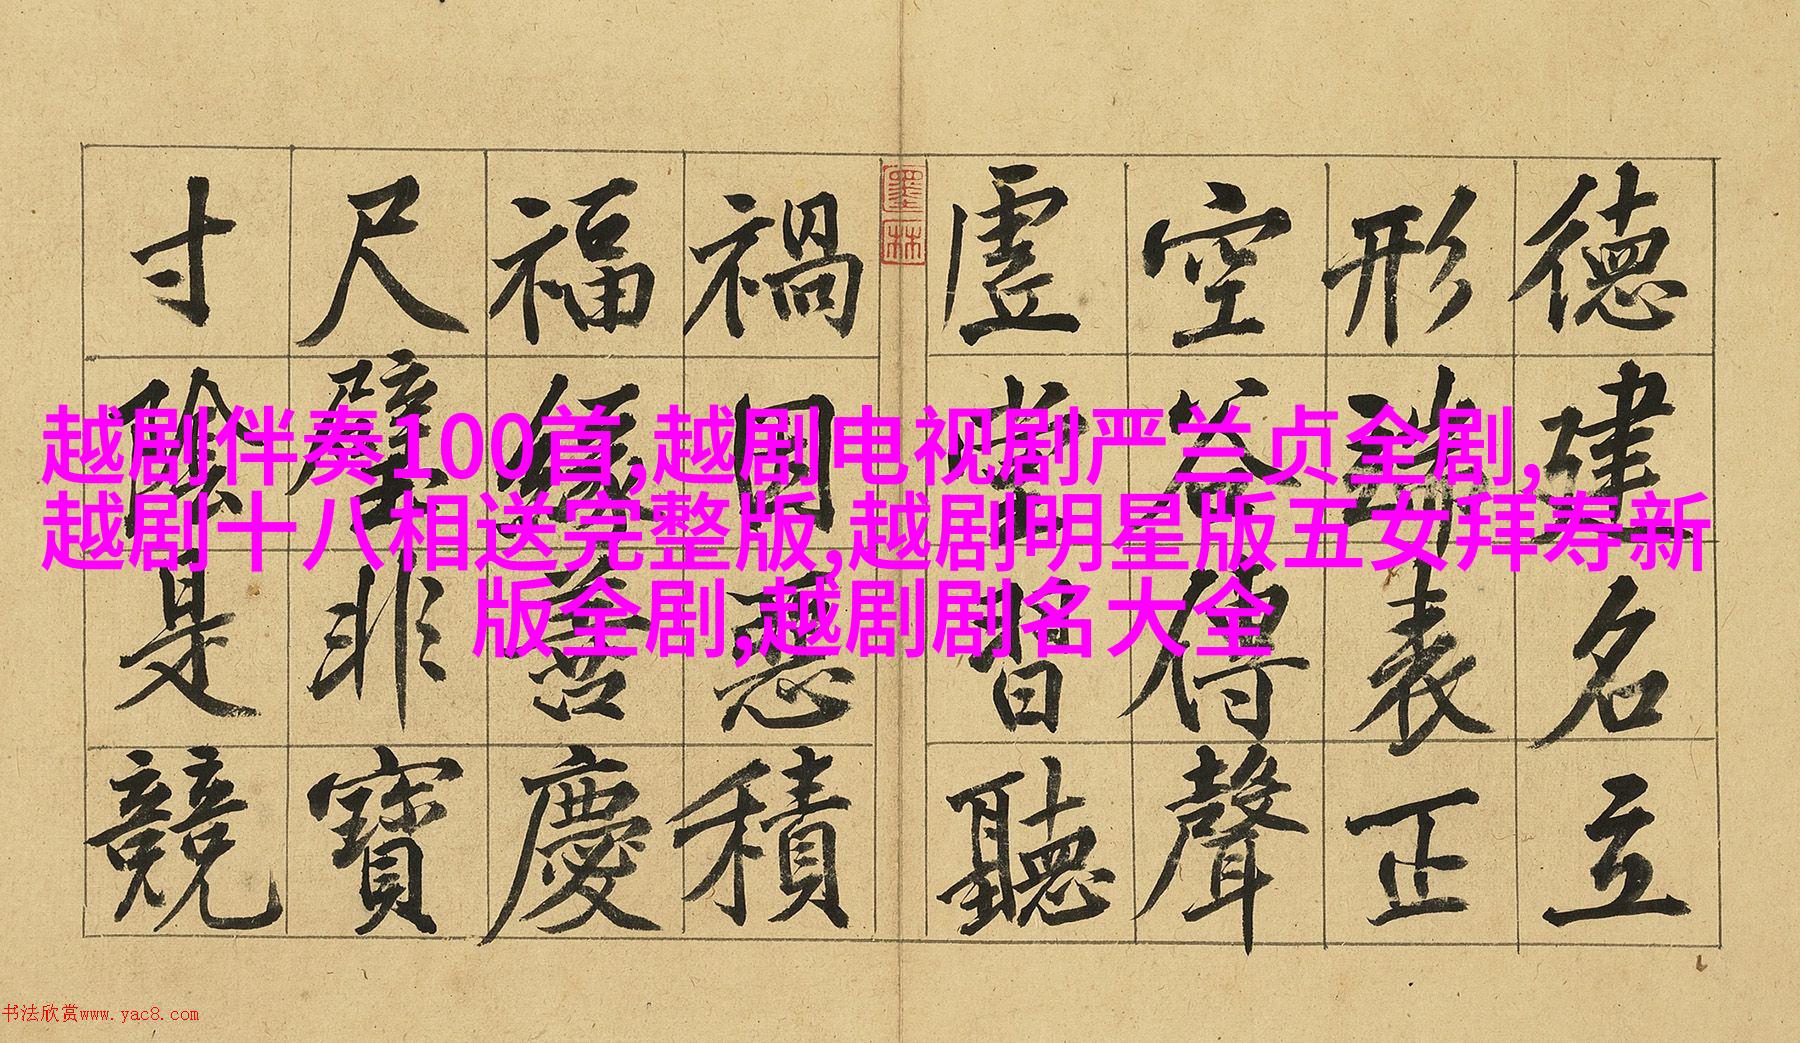 越剧伴奏100首,越剧电视剧严兰贞全剧,
越剧十八相送完整版,越剧明星版五女拜寿新
版全剧,越剧剧名大全
德建名立
形端表正
空谷傳聲
虛堂習聽
墨林
禍因惡積
福緣善慶
尺璧非寶
寸陰是競
书法欣赏www.yac8.com